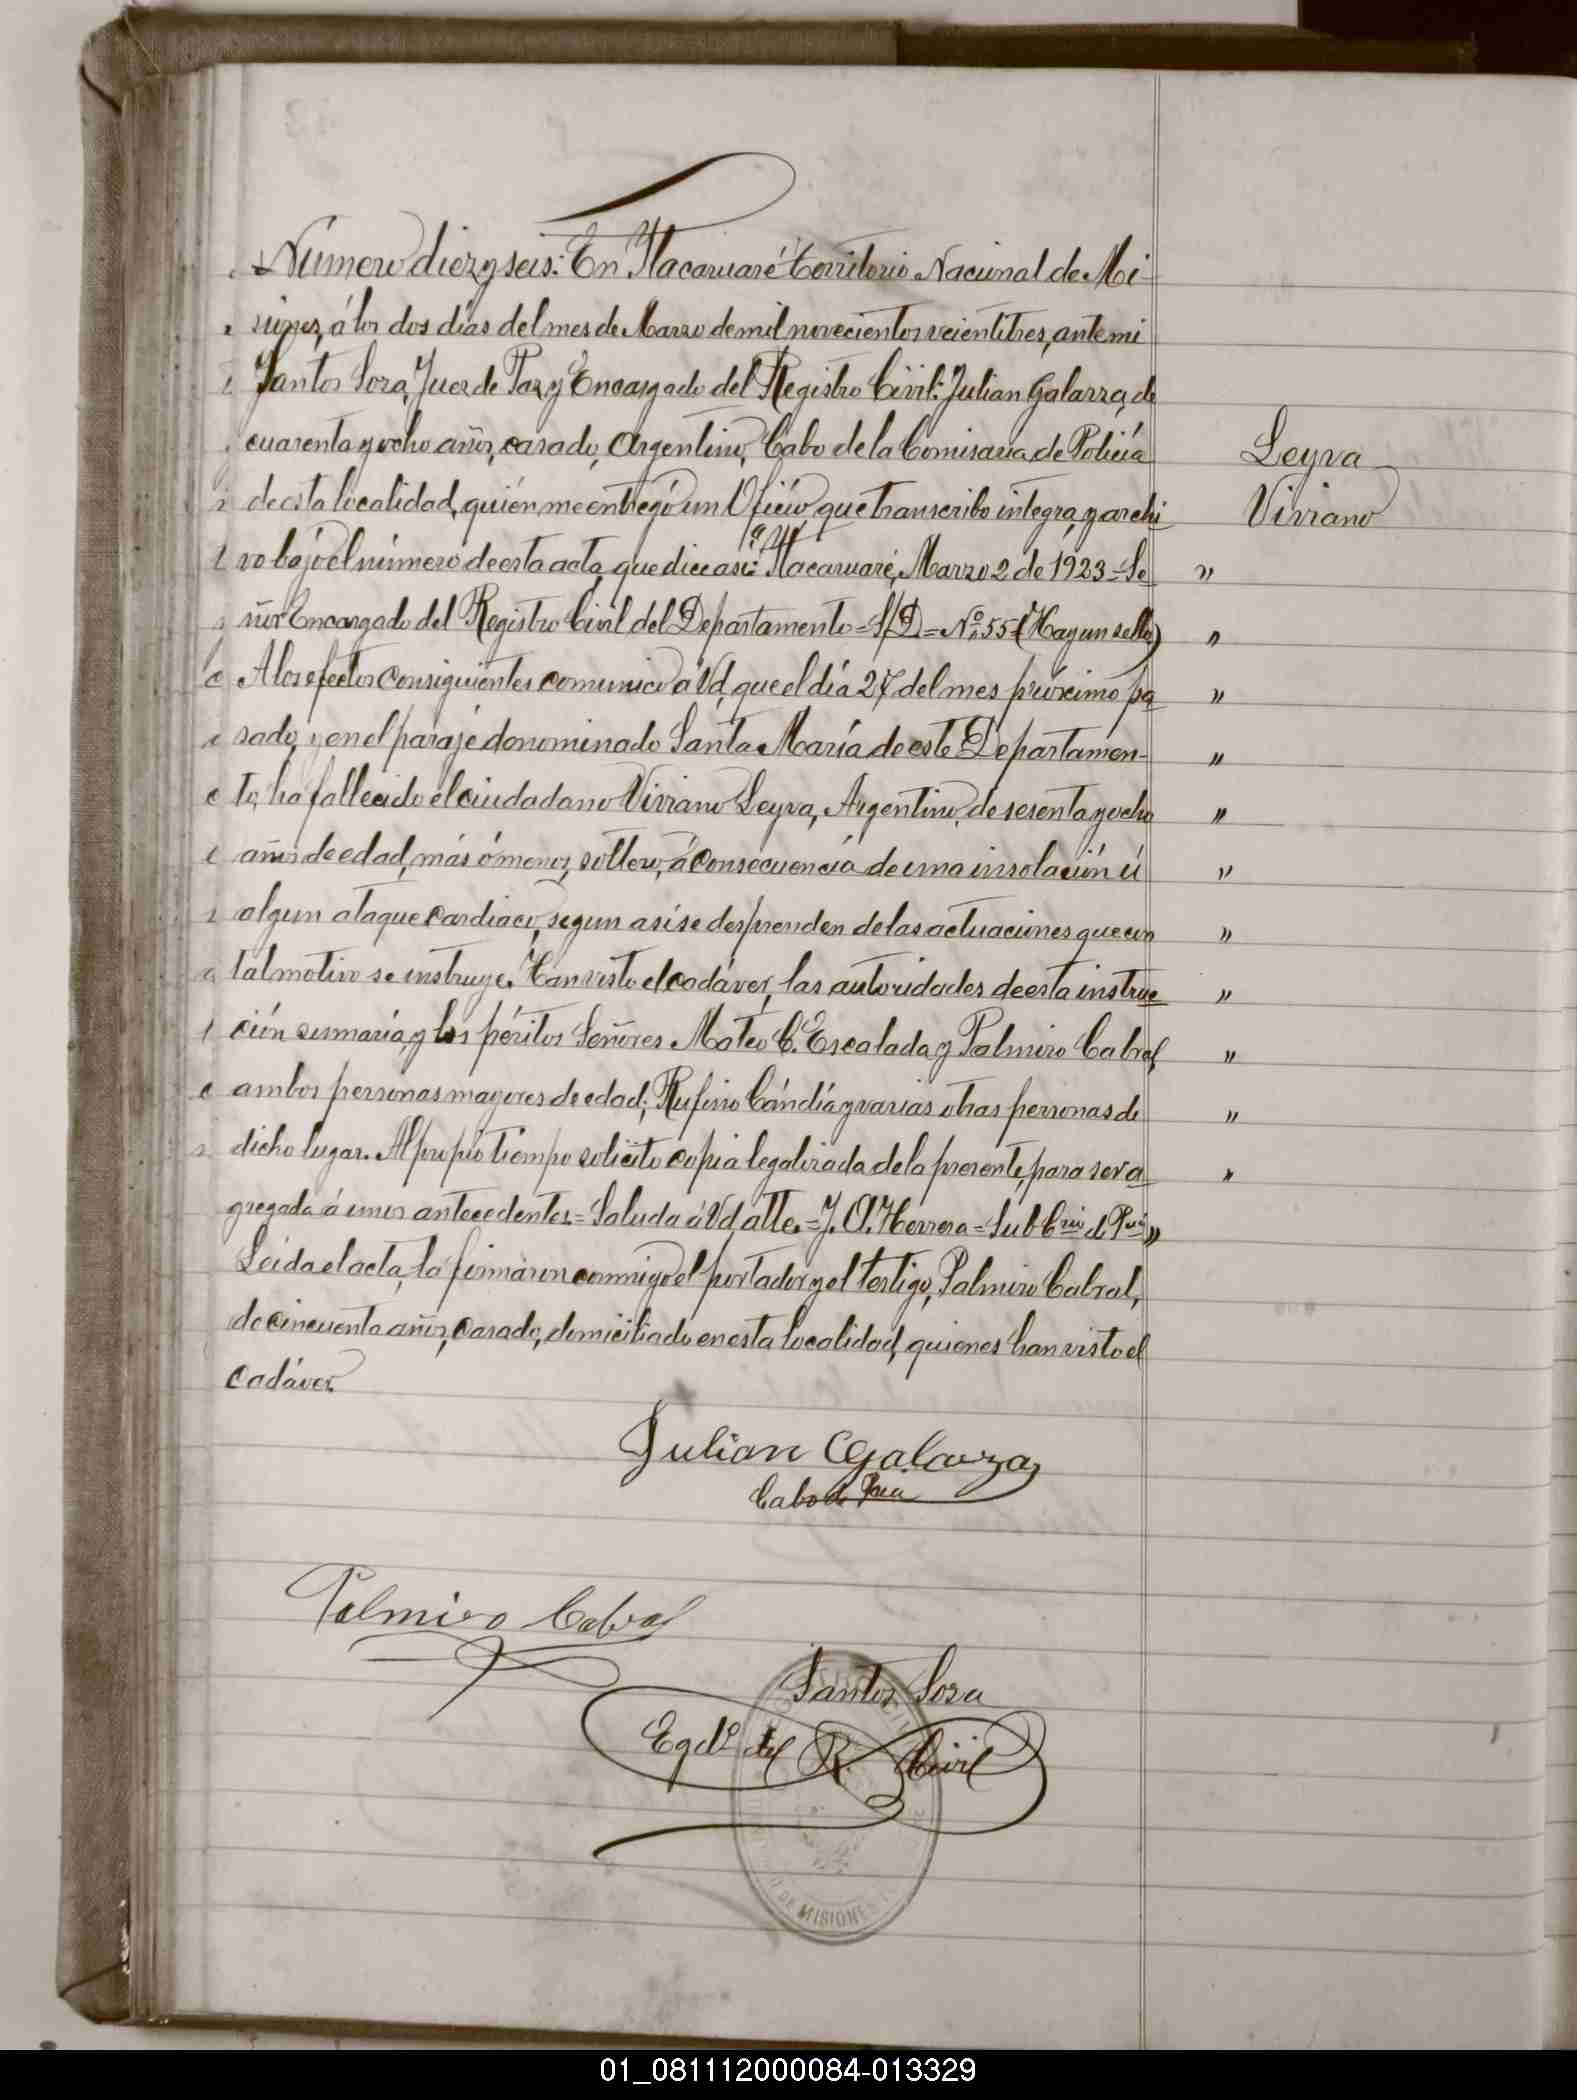 Número diez y seis: En Itacaruaré Territorio Nacional de Mi-
siones, á los dos días del mes de Marzo de mil novecientos veientitres, ante mi
Santos Sosa, Juez de Paz y Encargado del Registro Civil: Julian Galarza, de
cuarenta y ocho años, casado, Argentino, Cabo de la Comisaria de Policía
de esta localidad, quién me entregó un Oficio que transcribo integra, y archi
vo bajo el número de esta acta, que dice asi: "Itacaruaré, Marzo 2 de 1923 = Se
ñor Encargado del Registro Civil del Departamento = S/D = Nº 55 = (Hay un sello)
A los efectos consiguientes comunico á Vd, que el día 27 del mes próximo pa
sado, y en el paraje donominado Santa María de este Departamen-
to, ha fallecido el ciudadano Viviano Leyva, Argentino, de sesenta y ocho
años de edad, más ó menos, soltero, á consecuencia de una insolación ú
algun ataque cardiaco, segun asi se desprenden de las actuaciones que con
tal motivo se instruye. Han visto el cadáver, las autoridades de esta instruc
ción sumaria, y los péritos Señores Mateo C. Escalada y Palmiro Cabral,
ambos personas mayores de edad; Rufino Cándia y varias otras personas de
dicho lugar. Al propio tiempo solicito copia legalizada de la presente, para ser a
gregada á unos antecedentes = Saluda á Vd atte. = J. A. Herrera = Sub Crio de Pcia"
Leida el acta, la firmaron conmigo el portador y el testigo, Palmiro Cabral,
de cincuenta años, casado, domiciliado en esta localidad, quienes han visto el
cadáver.
Leyva
Viviano
Julian Galarza
Cabo de Pcia
Palmiro Cabral
Santos Sosa
Egdo del R. Civil
DE MISIONES
01_081112000084-013329